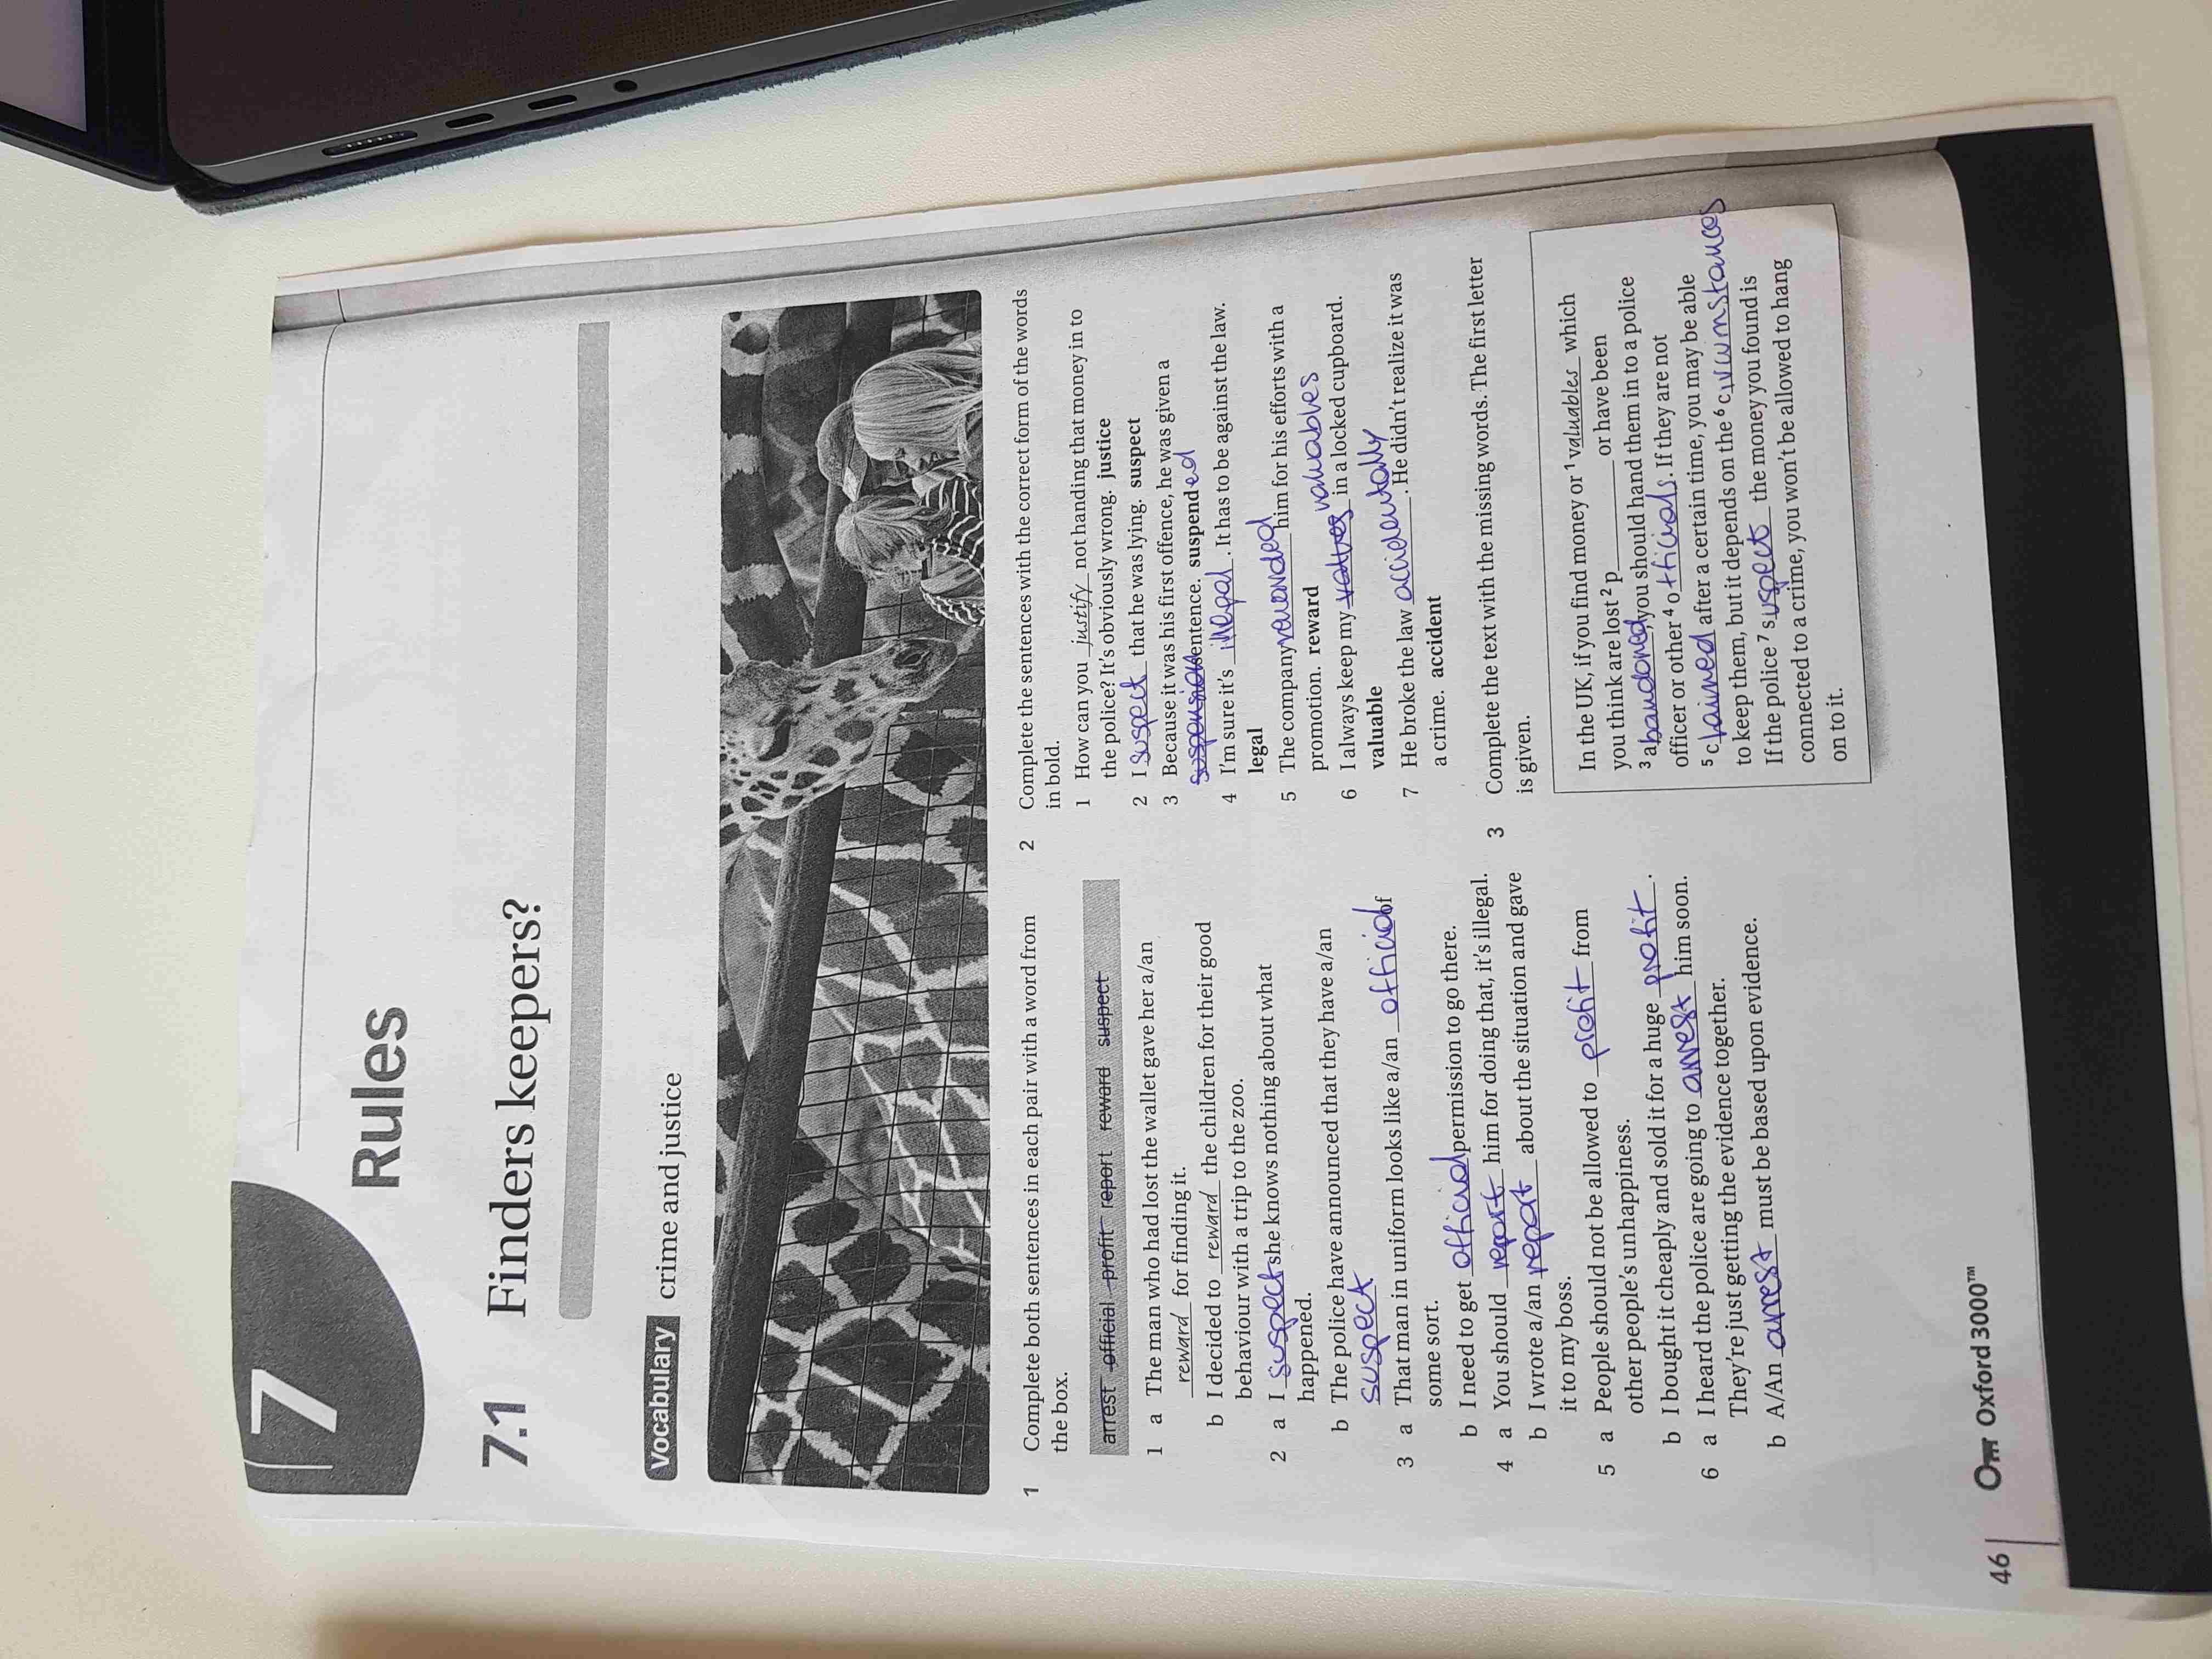 7
Rules
7.1 Finders keepers?
Vocabulary crime and justice
1 Complete both sentences in each pair with a word from
the box.
arrest official profit report reward suspect
1 a The man who had lost the wallet gave her a/an
reward for finding it.
b I decided to reward the children for their good
behaviour with a trip to the zoo.
2 a I suspect she knows nothing about what
happened.
b The police have announced that they have a/an
suspect
3 a That man in uniform looks like a/an official of
some sort.
b I need to get official permission to go there.
4 a You should report him for doing that, it's illegal.
b I wrote a/an report about the situation and gave
it to my boss.
5 a People should not be allowed to profit from
other people's unhappiness.
b I bought it cheaply and sold it for a huge profit.
6 a I heard the police are going to arrest him soon.
They're just getting the evidence together.
b A/An arrest must be based upon evidence.
2 Complete the sentences with the correct form of the words
in bold.
1 How can you justify not handing that money in to
the police? It's obviously wrong. justice
2 I suspect that he was lying. suspect
3 Because it was his first offence, he was given a
suspension sentence. suspended
4 I'm sure it's illegal. It has to be against the law.
legal
5 The company rewarded him for his efforts with a
promotion. reward
6 I always keep my valuables in a locked cupboard.
valuable
7 He broke the law accidentally. He didn't realize it was
a crime. accident
3 Complete the text with the missing words. The first letter
is given.
In the UK, if you find money or 1 valuables which
you think are lost 2 p or have been
3 abandoned, you should hand them in to a police
officer or other 4 officials. If they are not
5 claimed after a certain time, you may be able
to keep them, but it depends on the 6 circumstances
If the police 7 suspect the money you found is
connected to a crime, you won't be allowed to hang
on to it.
46 Oxford 3000™